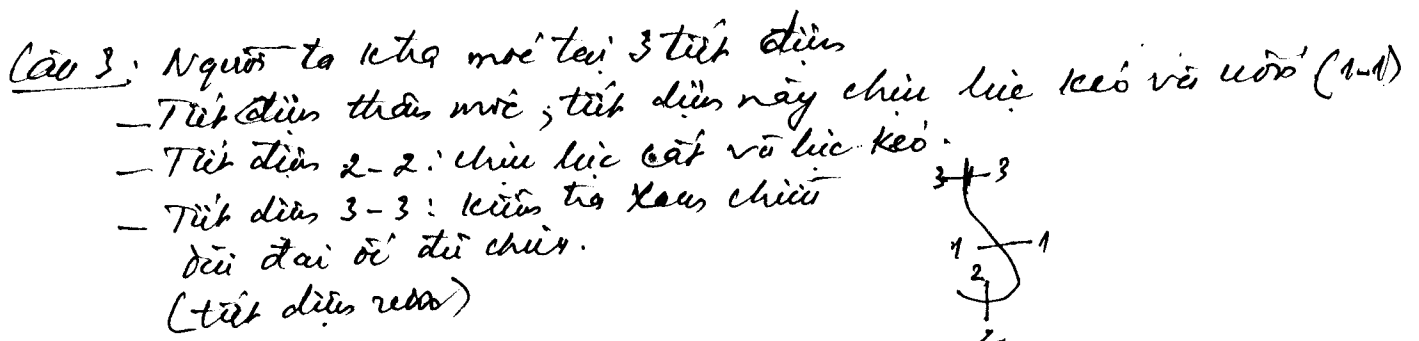 Câu 3: Người ta ktra móc tại 3 tiết diện
– Tiết diện thân móc, tiết diện này chịu lực kéo và uốn (1-1)
– Tiết diện 2-2: chịu lực cắt và lực kéo.
– Tiết diện 3-3: kiểm tra xem chiều
dài đai ốc đủ chưa.
(tiết diện ren)
3 3
1 1
2
2